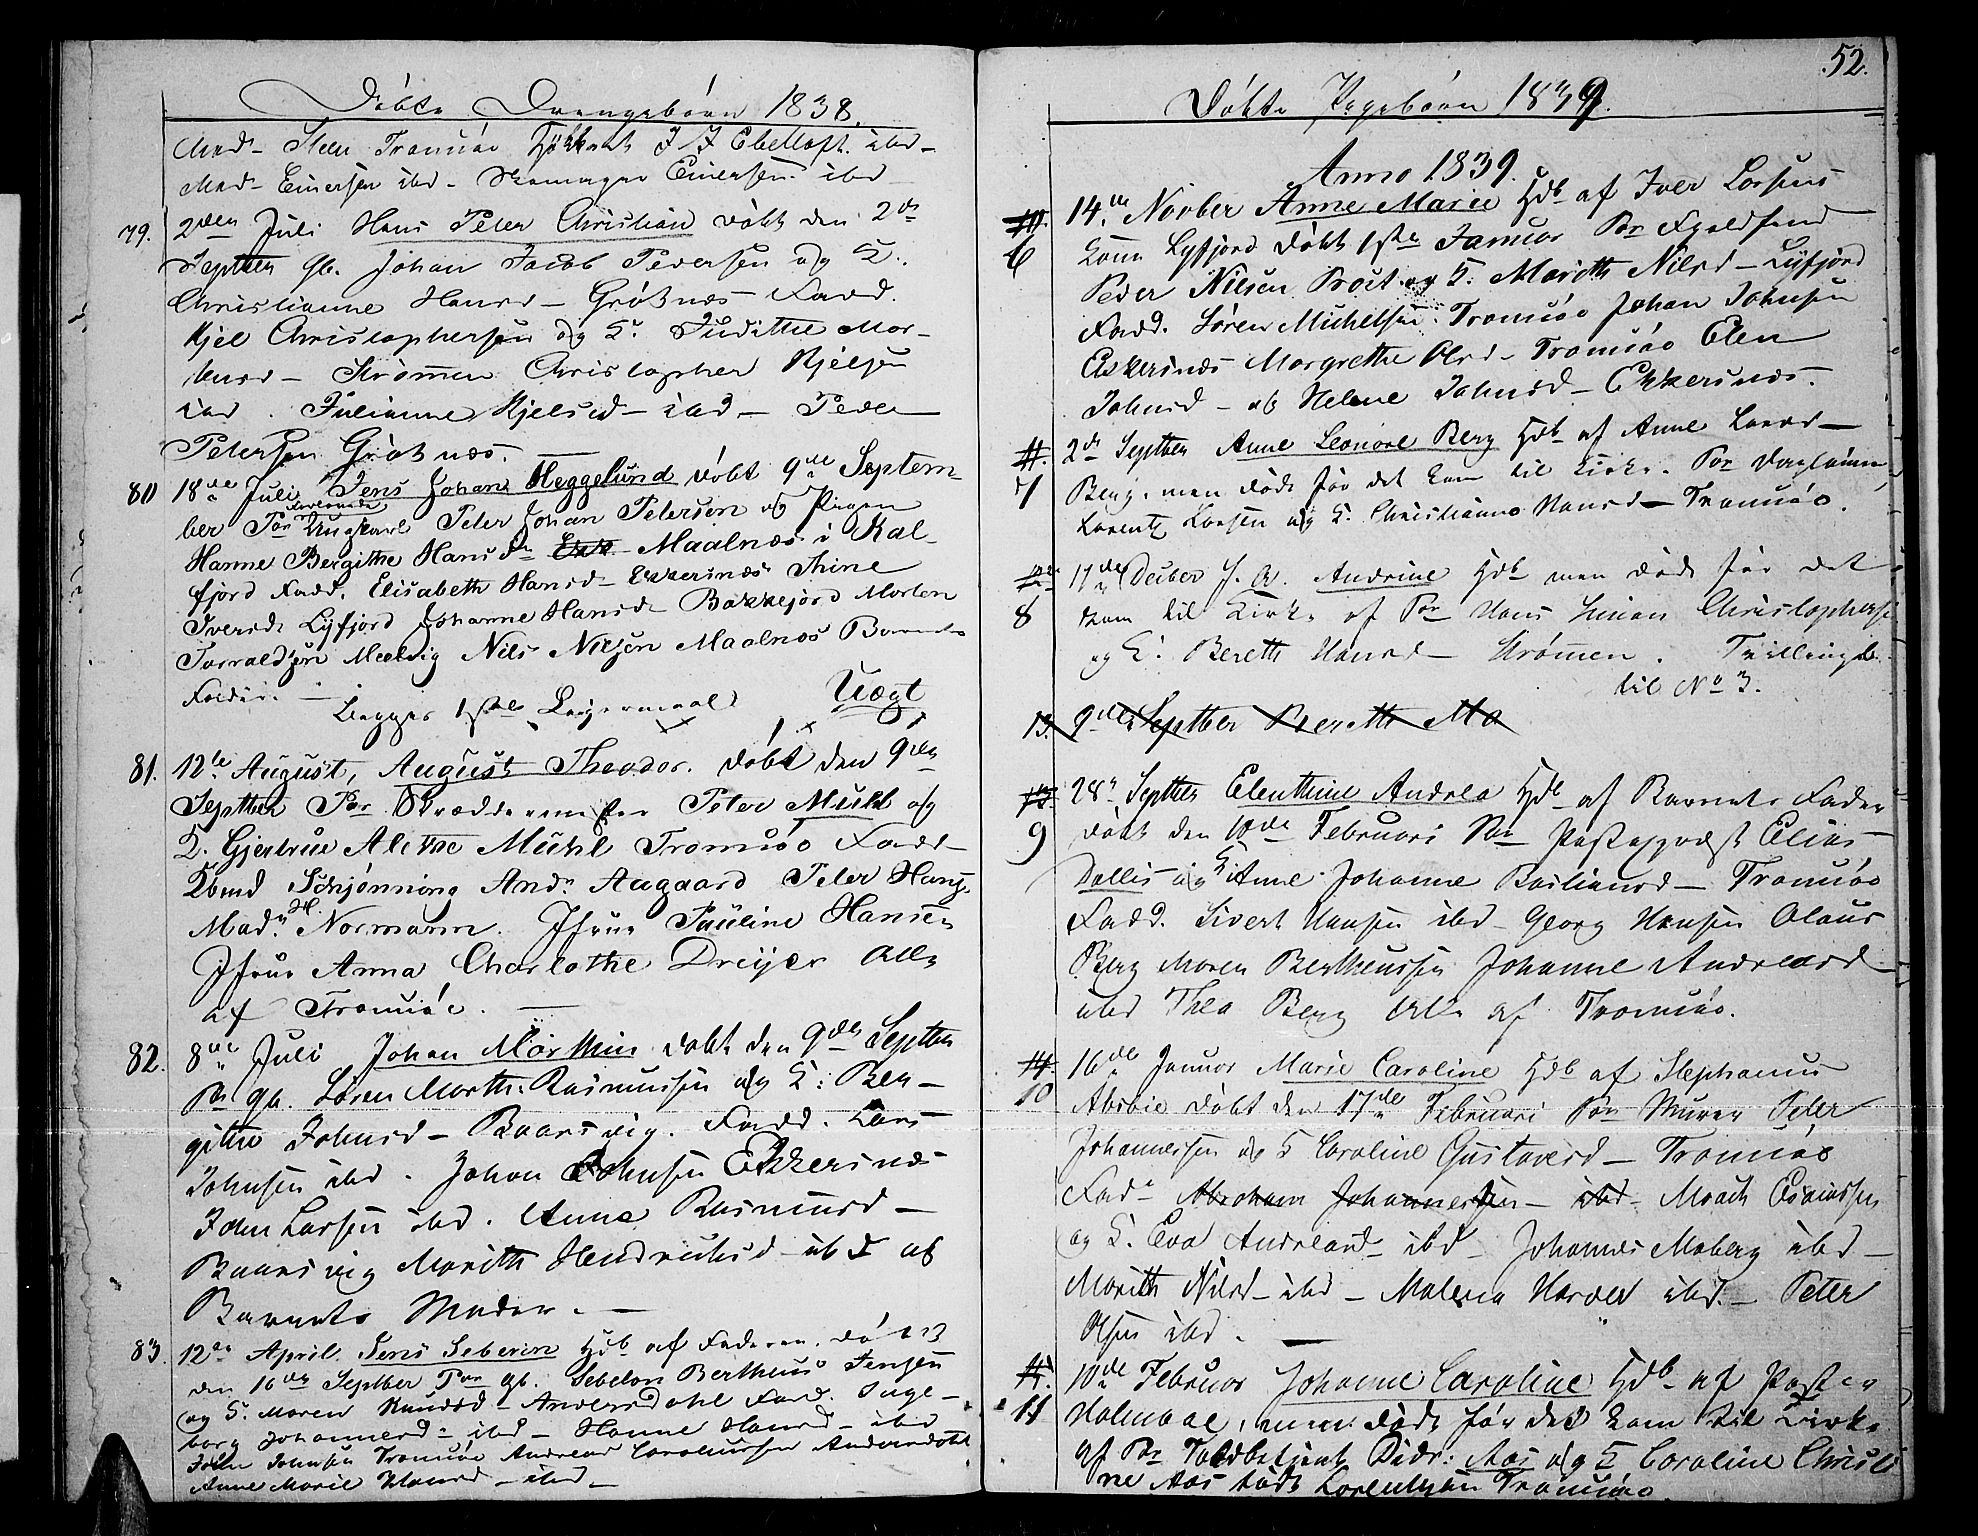 Døbte Drengebørn 1838.
Mad- Steen Tromsöe J J Ebeltoft ibd-
Mad- Einersen ibd- Skomager Einersen ibd
79. 2den Juli Hans Peter Christian döbt den 2de
Septber Gb. Johan Jacob Pedersen og K.
Christianne Hansd- Grötnæs Fadd.
Kjel Christophersen og K. Judithe Mor-
tensd- Strömmen Christopher Kjelsen
ibd. Julianne Kjelsd- ibd- Peder
Petersen Grötnæs.
80 18de Juli Jens Johan Heggelund döbt 9de Septem-
ber For Ungkarl Peter Johan Petersen og Pigen
Hanne Bergithe Hansdr Maalnæs i Kal-
fjord Fadd. Elisabeth Hansd- Ekkersnæs Thine
Iversdr Lyfjord Johanne Hansdr Bakkejord Morten
Torvaldsen Meelvig Nils Nilsen Maalnæs Barnets
Fader. - Begges 1ste Leiermaal Uægt
81. 12te August, August Theodor. döbt den 9de
Septber For Skræddermester Peter Mühl og
K. Gjertrue Alethe Mühl Tromsöe Fadd-
Kbmd Schjønning Andr. Aagaard Peter Hansen
Madm. Normann. Jfrue Pauline Hansen
Jfrue Anna Charlothe Dreyer Alle
af Tromsöe. -
82. 8de Juli Johan Morthin döbt den 9de Septber
Fr gb. Sören Morth. Rasmussen og K: Ber-
githe Johnsd- Baarsvig. Fadd. Lars
Johnsen ibd. Johan Johnsen Ekkersnæs
John Larsen ibd. Anne Rasmusd-
Baarsvig Marith Hendrichsd ibd og
Barnets Moder. -
83. 12te April. Jens Severin Hdb af Faderen. döbt
den 16de Septber For gb. Sebelon Bertheus Jensen
og K. Maren Knudsd- Andersdahl Fadd. Inge-
borg Johannesd- ibd- Hanne Hansd- ibd
John Johnsen Tromsöe Andreas Andersdahl
Anne Marie Hansd- ibd-
52.
Døbte Pigebørn 1839.
Anno 1839.
10. 14de Novber Anne Marie Hdb af Iver Larsens
6 Kone Lyfjord döbt 1ste Januar For
Peder Nilsen Proet og K. Marith Nilsd- Lyfjord
Fadd. Sören Michelsen Tromsöe Johan Johnsen
Ekkersnæs Margrethe Olsd- Tromsöe Elen
Johnsd- og Helene Johnsd- Ekkersnæs.
11. 2de Septber Anne Leonore Berg Hdb af Anne Larsd-
7 Berg, men döde för det kom til Kirke. For
Lorentz Larsen og K. Christianne Hansd- Tromsöe.
12. 17de Decber f. A. Andrine Hdb men döde för det
8 kom til Kirke af For Hans Simon Christophersen
og K. Bereth Hansd- Strømmen. Tvillingb.
til No 3.
13. 9de Septber Bereth Ma
13. 28de Septber Elenthine Andrea Hdb af Barnets Fader
9 döbt den 10de Februari For Elias
Dallis og K. Anne Johanne Bastiansd- Tromsöe
Fadd. Sivert Hansen ibd- Georg Hansen Olaus
Berg Maren Bertheussen Johanne Andreasd-
ibd Thea Berg Alle af Tromsöe.
14. 16de Januar Marie Caroline Hdb af Stephanus
10 döbt den 17de Februari For Murer Peter
Johannessen og K Caroline Gustavesd- Tromsöe
Fadd Abraham Johannessen- ibd- Esaiassen
og K. Eva Andreasd- ibd- Johannes Moberg ibd-
Marith Nilsd- ibd- Malena ibd.- Peter
Olsen ibd.
15. 10de Februar Johanne Caroline Hdb af Pastor
11 Holmboe, men döde för det kom til Kirke
af For Toldbetjent Didr: Aas og K Caroline Christi
ne Aas födt Lorentzen Tromsöe